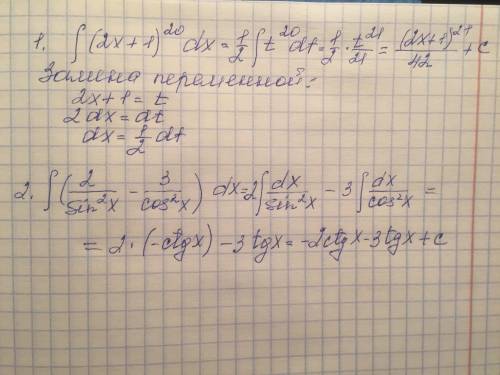 1. ∫(2x+1)^20 dx = 1/2 ∫t^20 dt = 1/2 · t^21/21 = (2x+1)^21/42 + c
Замена переменной:
2x+1 = t
2dx = dt
dx = 1/2 dt
2. ∫(2/sin²x − 3/cos²x) dx = 2∫dx/sin²x − 3∫dx/cos²x =
= 2·(−ctgx) − 3tgx = −2ctgx − 3tgx + c